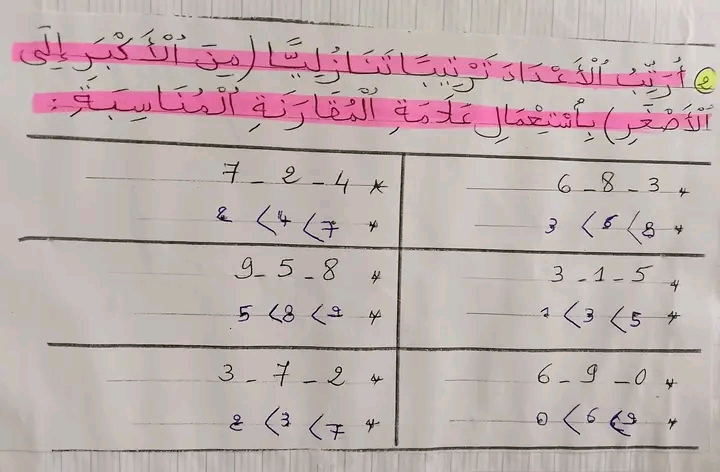 2 أُرَتِّبُ اُلْأَعْدَادَ تَرْتِيبًا تَنَازُلِيًّا (مِنَ اُلْأَكْبَرِ إِلَى
اُلْأَصْغَرِ) بِاُسْتِعْمَالِ عَلَامَةِ اُلْمُقَارَنَةِ اُلْمُنَاسِبَةِ :
* 6 - 8 - 3
* 3 < 6 < 8
* 7 - 2 - 4
* 2 < 4 < 7
* 3 - 1 - 5
* 1 < 3 < 5
* 9 - 5 - 8
* 5 < 8 < 9
* 6 - 9 - 0
* 0 < 6 < 9
* 3 - 7 - 2
* 2 < 3 < 7